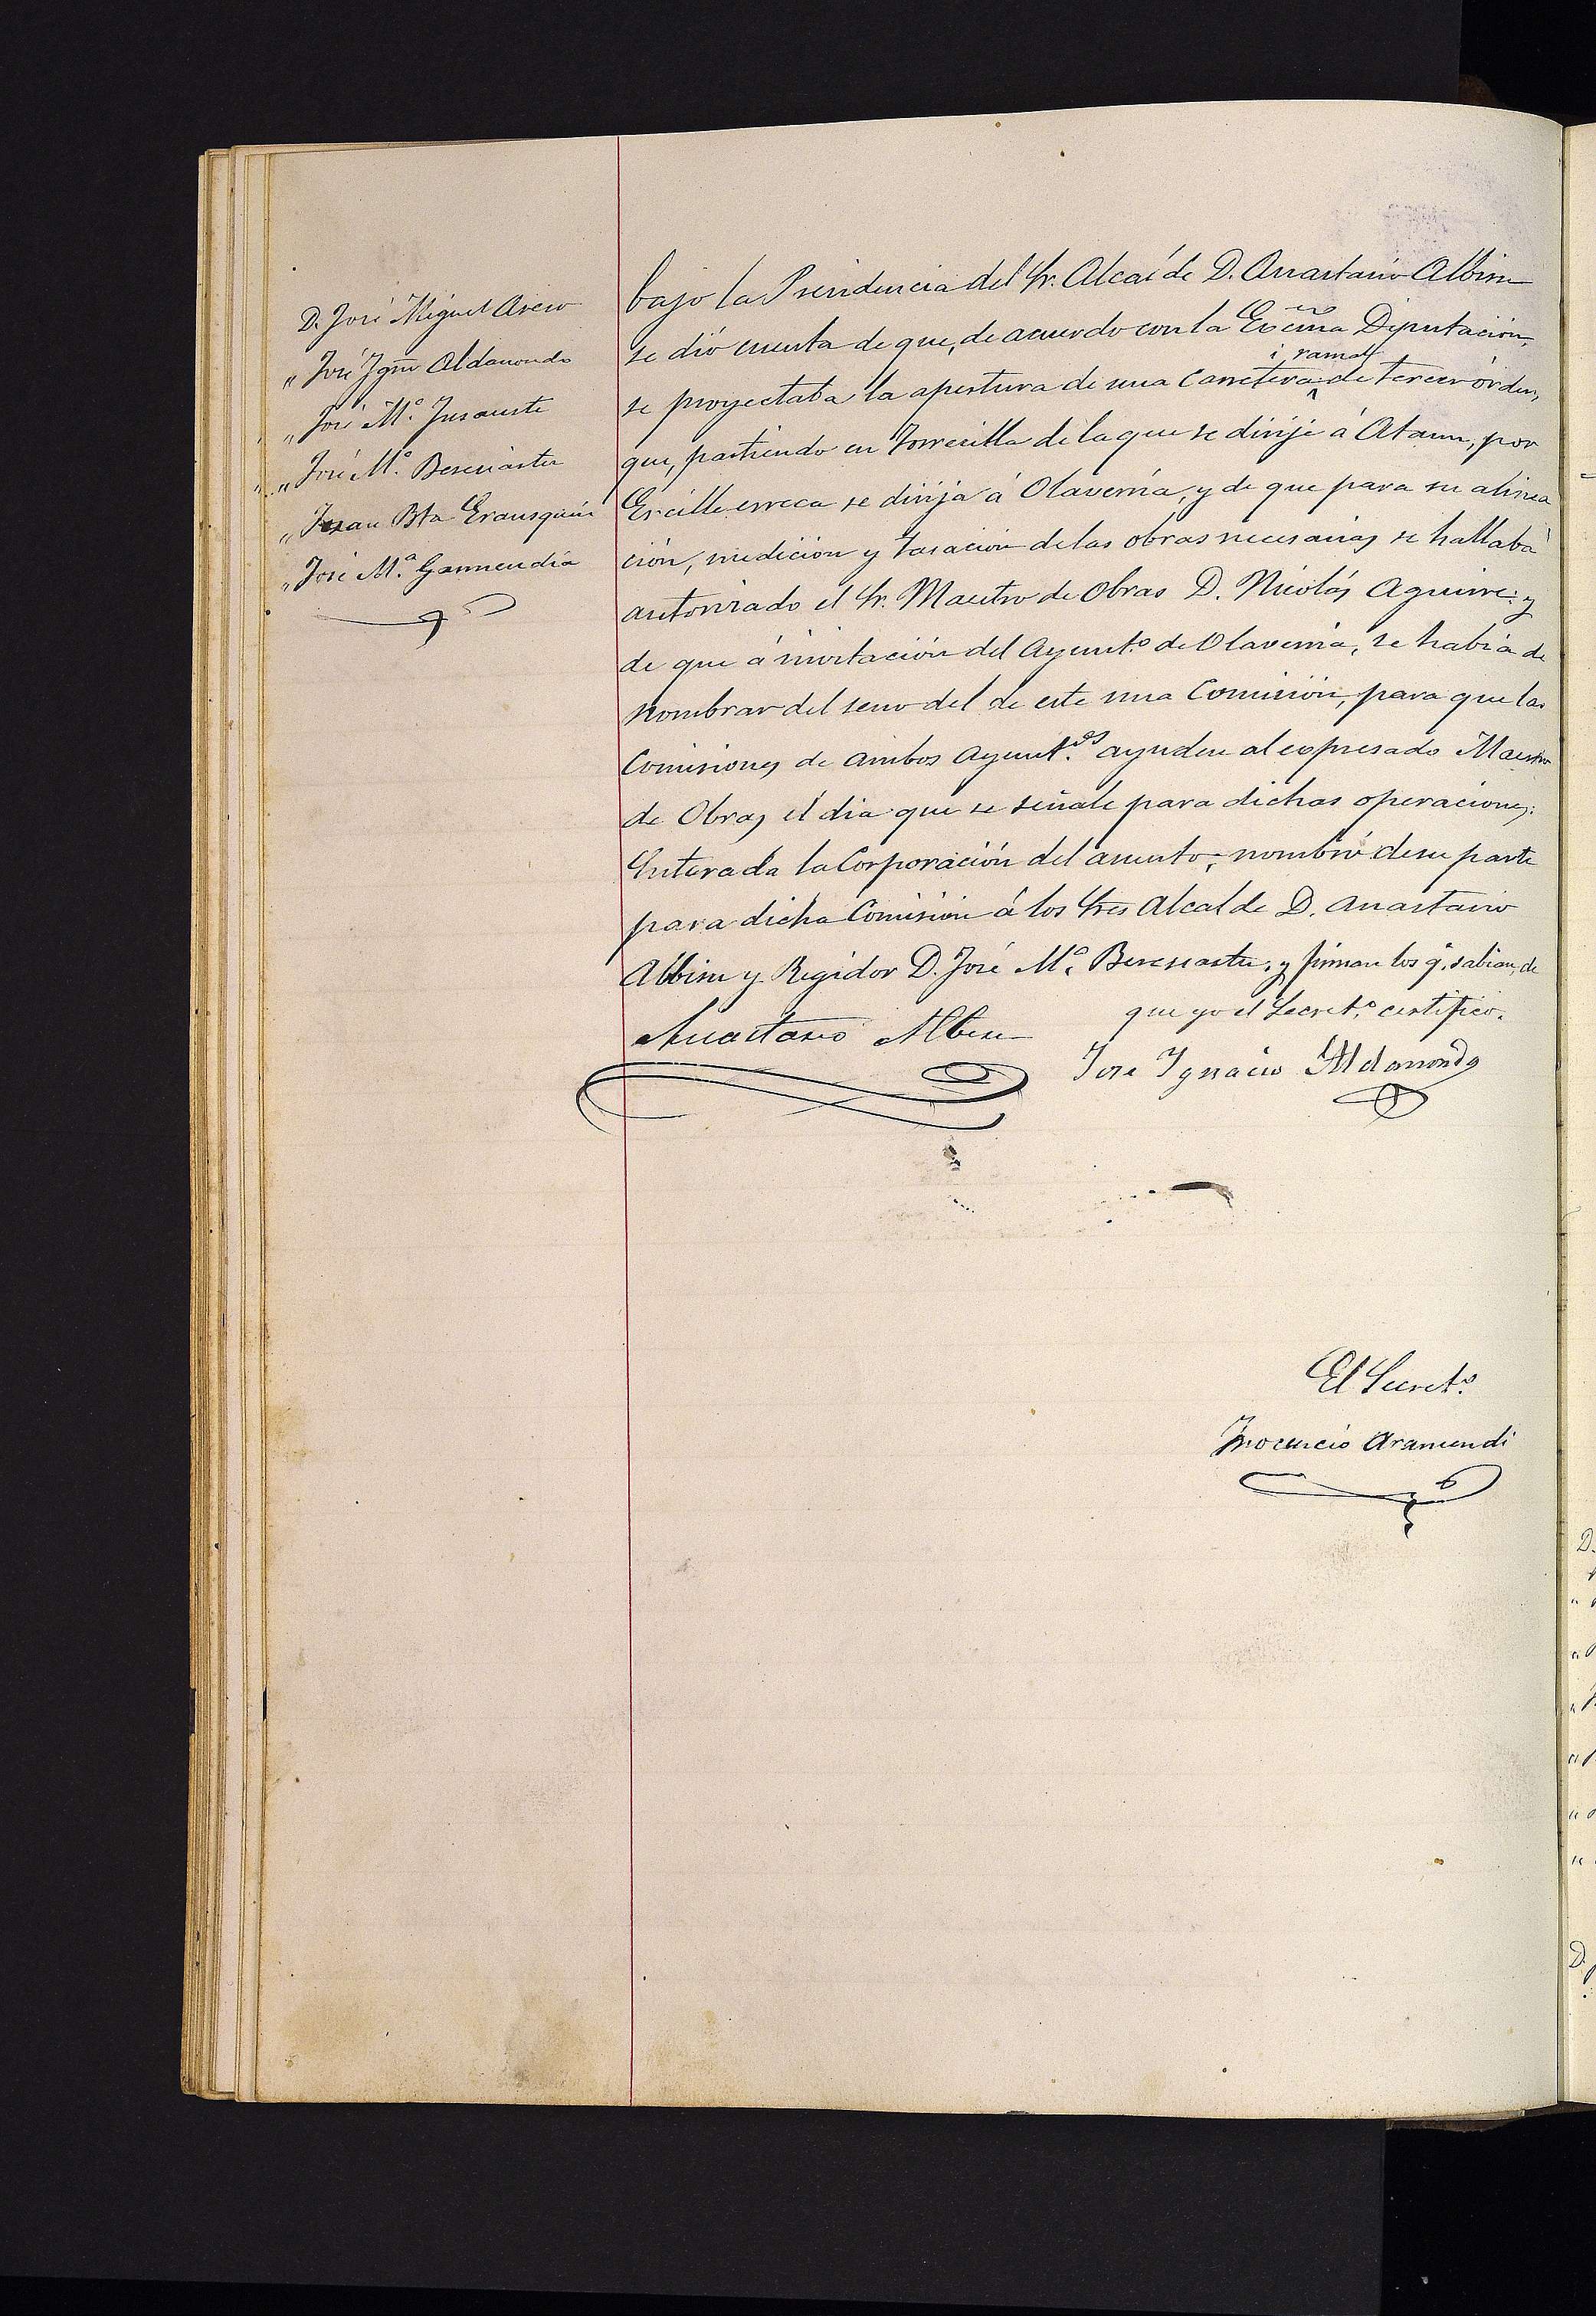 D. José Miguel Asero
„ José Ygn̄o Aldanondo
„ José M.ª Insausti
„ José M.ª Beresiartu
„ Juan Bta Erausquin
„ José M.ª Garmendia
bajo la Presidencia del Sr. Alcalde D. Anastasio Albisu
se dió cuenta de que, de acuerdo con la Excma Diputación,
se proyectaba la apertura de una carretera ramal de tercer órden,
que, partiendo en Torrecilla de la que se dirije á Ataun, por
Ercille erreca se dirija á Olaverría, y de que para su alinea
ción, medición y tasación de las obras necesarias se hallaba
autorizado el Sr. Maestro de Obras D. Nicolás Aguirre: y
de que á invitación del Ayunt.º de Olaverria, se habia de
nombrar del seno del de este una Comisión, para que las
Comisiones de ambos Ayunt.ᵒˢ ayuden al expresado Maestro
de Obras el dia que se señale para dichas operaciones:
Enterada la Corporación del asunto, nombró de su parte
para dicha Comisión á los Sres Alcalde D. Anastasio
Albisu y Regidor D. José M.ª Beresiartu, y firman los q. sabian, de
que yo el Secret.º certifico.
Anastasio Albisu
Jose Ygnacio Aldanondo
El Secret.º
Inocencio Aramendi